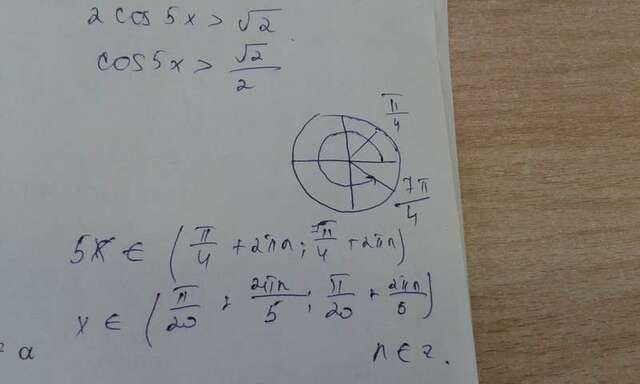 2 cos 5x > √2
cos 5x > √2/2
π/4
7π/4
5x ∈ (π/4 + 2πn; 7π/4 + 2πn)
x ∈ (π/20 + 2πn/5; π/20 + 2πn/5)
a
n ∈ z.